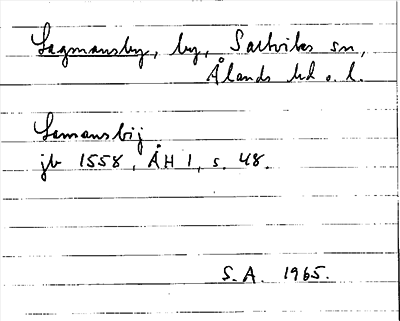 Lagmansby, by, Saltviks sn,
Ålands hd o. l.
Lamansbij
jb 1558, ÅH 1, s. 48.
S.A. 1965.